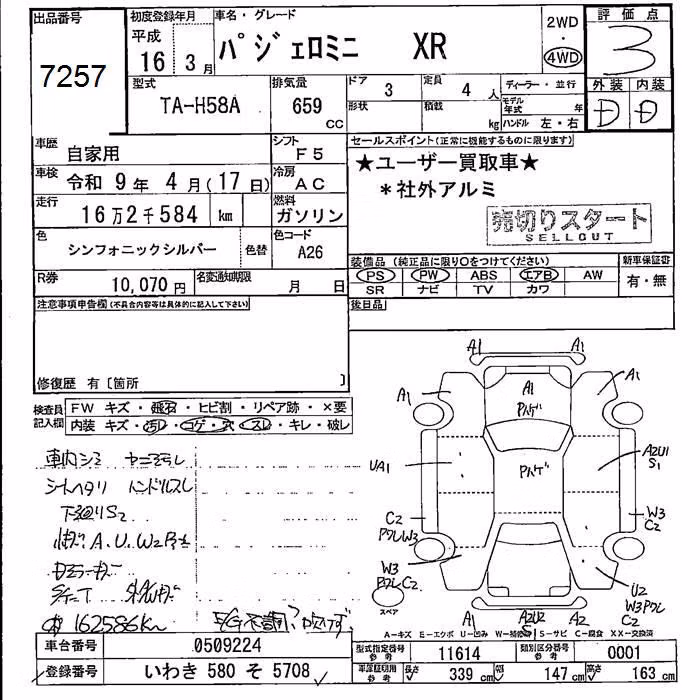 出品番号
7257
初度登録年月
平成
16 3月
車名・グレード
パジェロミニ XR
2WD
・
4WD
評価点
3
外装 内装
D D
型式
TA-H58A
排気量
659 CC
ドア
3
定員
4 人
形状
積載
kg
ディーラー・並行
モデル年式
年
ハンドル 左・右
車歴
自家用
シフト
F5
車検
令和 9年 4月(17日)
冷房
AC
走行
16万2千584 km
燃料
ガソリン
色
シンフォニックシルバー
色替
色コード
A26
R券
10,070 円
名変通知期限
月 日
セールスポイント(正常に機能するものに限ります)
★ユーザー買取車★
*社外アルミ
売切りスタート
SELLOUT
装備品(純正品に限り○をつけてください)
PS PW ABS エアB AW
SR ナビ TV カワ
新車保証書
有・無
後日品
注意事項申告欄(不具合内容等は具体的に記入して下さい)
修復歴 有〔箇所 〕
検査員記入欄
FW キズ・飛石・ヒビ割・リペア跡・×要
内装 キズ・汚れ・コゲ・穴・スレ・キレ・破レ
車内シミ ヤニモモレ
シートヘタリ ハンドルスレ
下廻りS2
A.U.W2
162586km
A1 A1
A1 A1
A1
UA1
A2U2
S1
C2
W3
W3
C2
W3
C2
U2
W3
C2
A1 A2U2 A2
S
スペア
A-キズ E-エクボ U-凹み W-補修跡 S-サビ C-腐食 XX-交換済
車台番号
0509224
登録番号
いわき 580 そ 5708
型式指定番号
参考
11614
類別区分番号
参考
0001
車庫証明用
参考
長さ 339 cm 幅 147 cm 高さ 163 cm